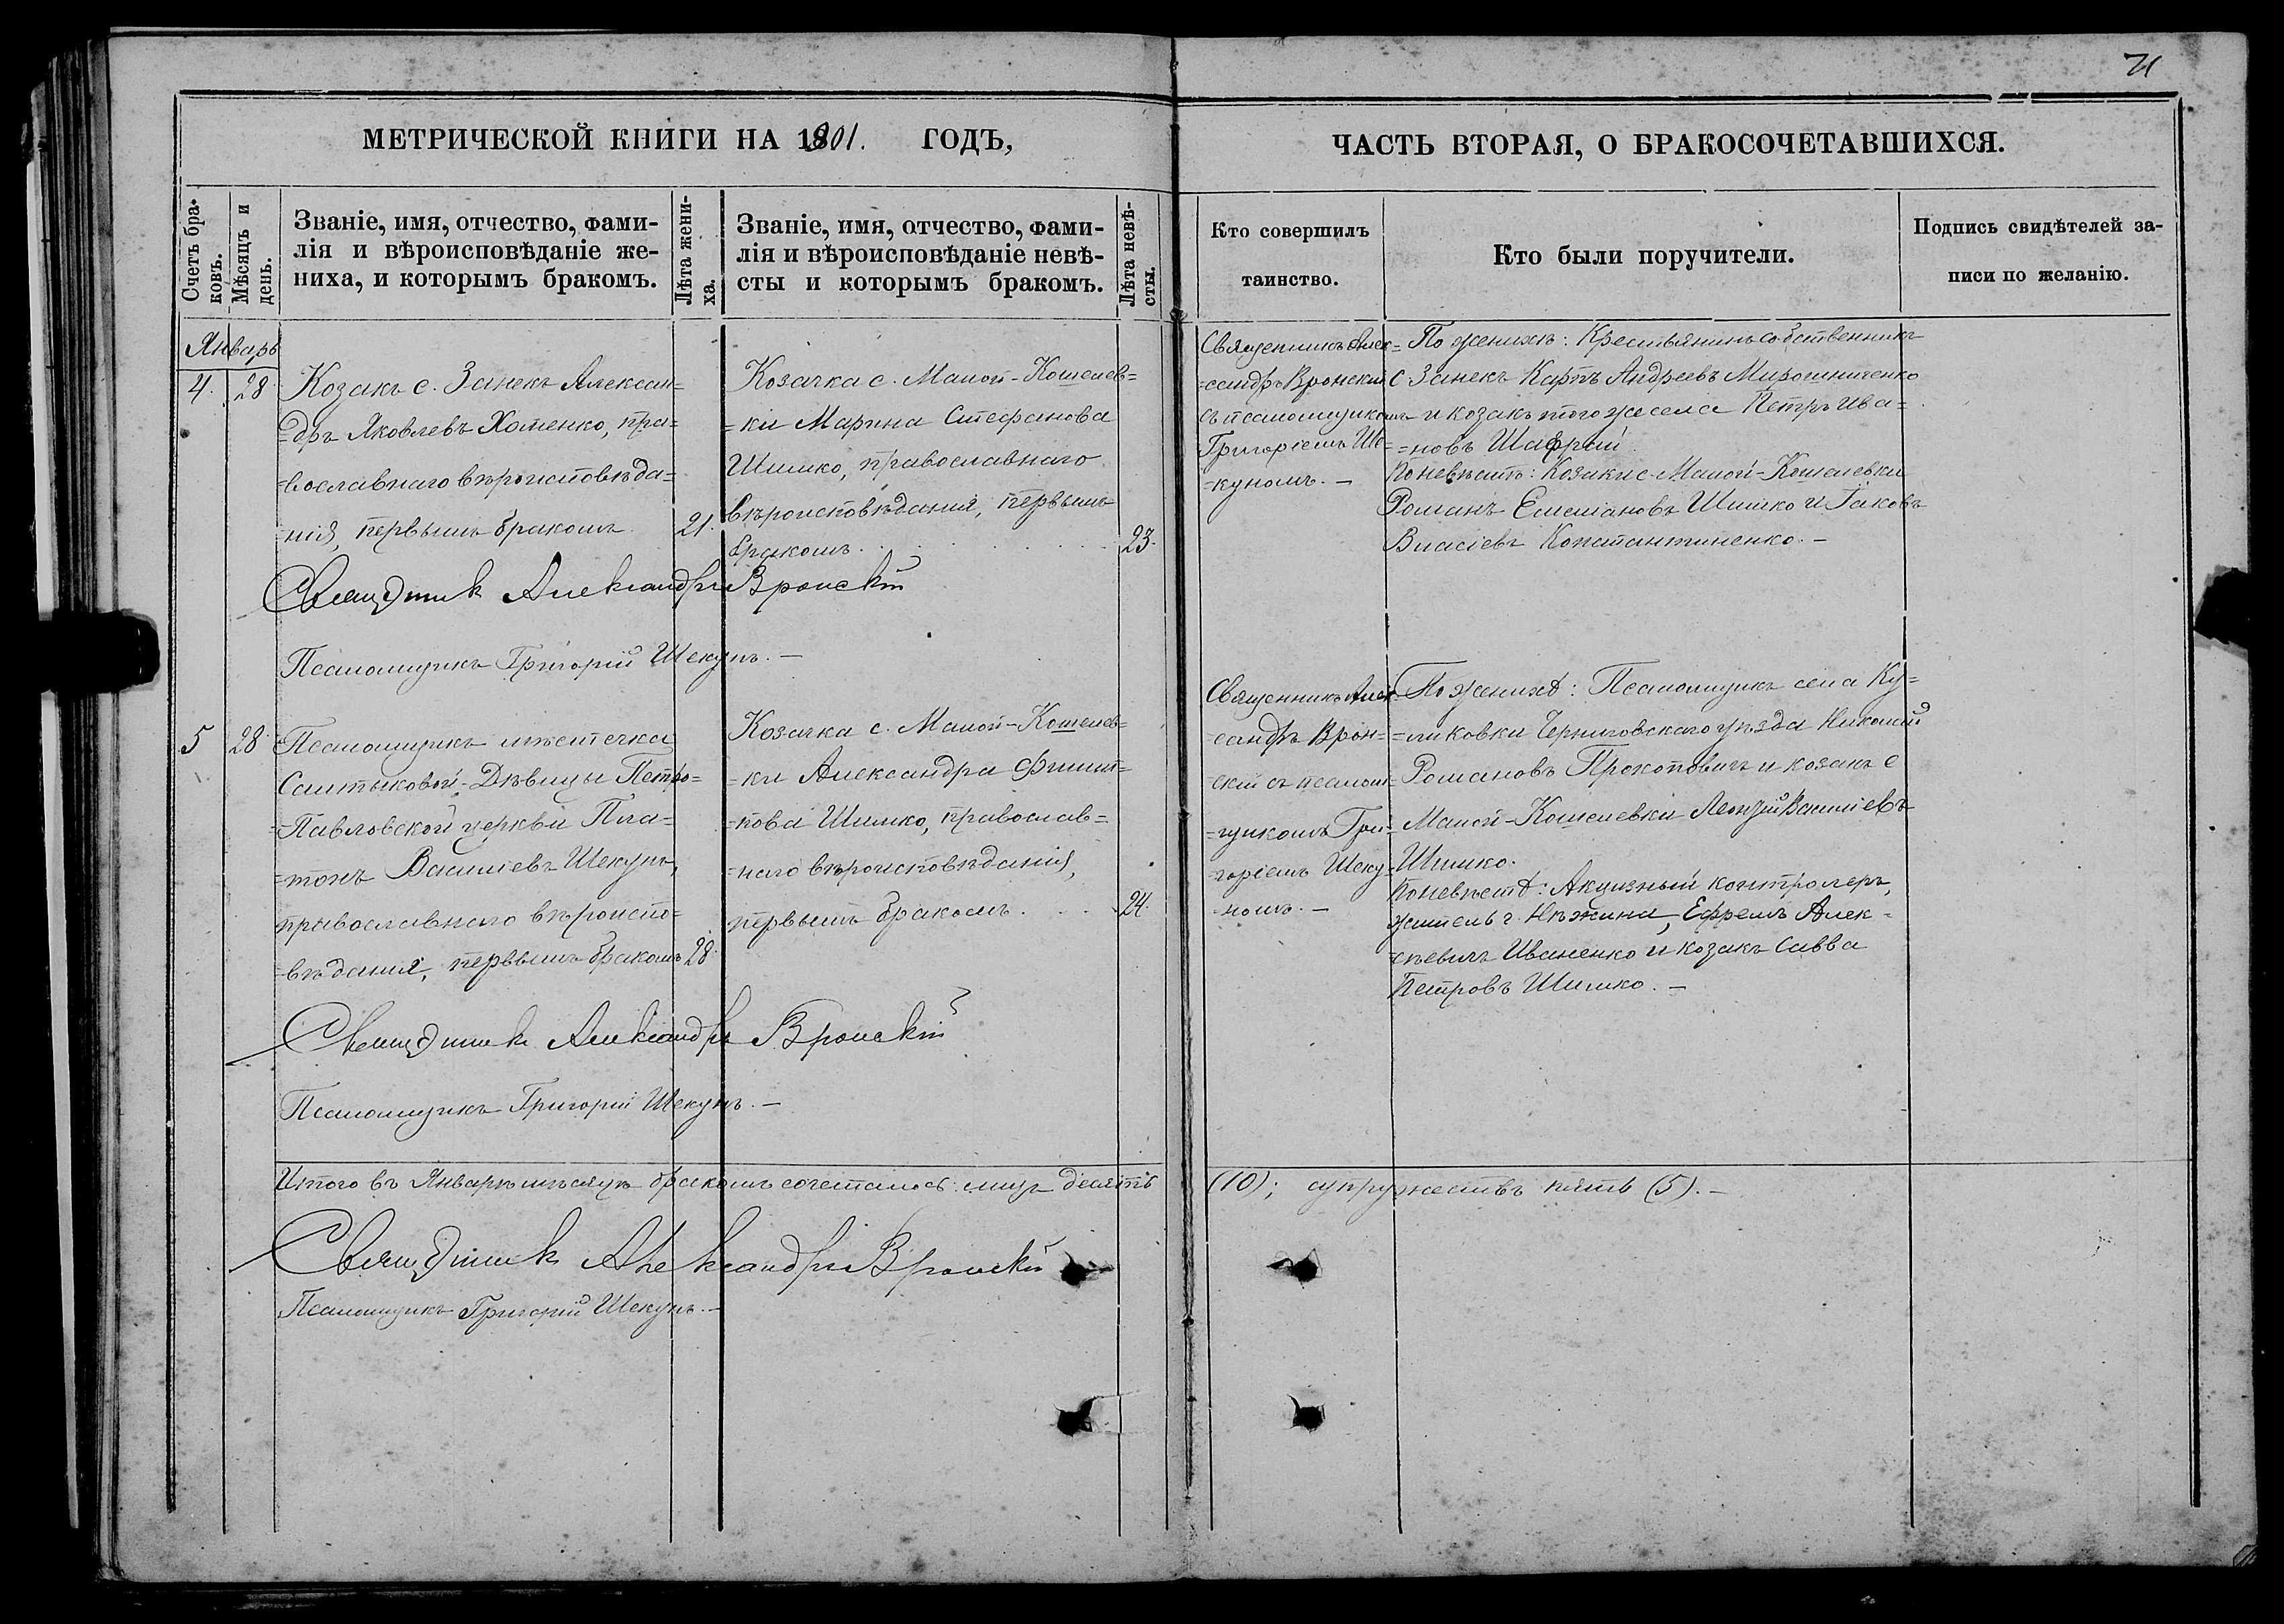 71
МЕТРИЧЕСКОЙ КНИГИ НА 1901. ГОДЪ,
ЧАСТЬ ВТОРАЯ, О БРАКОСОЧЕТАВШИХСЯ.
Счетъ бра-
ковъ.
Мѣсяцъ и
день.
Званіе, имя, отчество, фами-
лія и вѣроисповѣданіе же-
ниха, и которымъ бракомъ.
Лѣта жени-
ха.
Званіе, имя, отчество, фами-
лія и вѣроисповѣданіе невѣ-
сты и которымъ бракомъ.
Лѣта невѣ-
сты.
Кто совершилъ
таинство.
Кто были поручители.
Подпись свидѣтелей за-
писи по желанію.
Январь
4. 28
Козакъ с. Занекъ Алексан=
=дръ Яковлевъ Хоменко, пра=
=вославнаго вѣроисповѣда=
нія, первымъ бракомъ 21.
Козачка с. Малой-Кошелев=
=ки Марина Стефанова
Шишко, православнаго
вѣроисповѣданія, первымъ
бракомъ. 23.
Священникъ Алек=
=сандръ Вронскій
съ псаломщикомъ
Григоріемъ Ше=
=куномъ. —
По женихѣ: Крестьянинъ собственникъ
с Занекъ Карпъ Андреевъ Мирошниченко
и козакъ того же села Петръ Ива=
=новъ Шафрай
По невѣстѣ: Козаки с. Малой-Кошелевки
Романъ Емеліановъ Шишко и Іаковъ
Власіевъ Константиненко. —
Священникъ Александръ Вронскій
Псаломщикъ Григорій Шекунъ. —
5 28
Псаломщикъ мѣстечка
Салтыковой-Дѣвицы Петро=
=Павловской церкви Пла=
=тонъ Васильевъ Шекунъ,
православнаго вѣроиспо=
=вѣданія, первымъ бракомъ 28.
Козачка с. Малой-Кошелев=
=ки Александра Филип=
=пова Шишко, православ=
=наго вѣроисповѣданія,
первымъ бракомъ. 24.
Священникъ Алек=
=сандръ Врон=
скій съ псалом=
=щикомъ Гри=
=горіемъ Шеку=
=номъ. —
По женихѣ: Псаломщикъ села Ку=
=ликовки Черниговскаго уѣзда Николай
Романовъ Прокоповичъ и козакъ с
Малой-Кошелевки Леонтій Василіевъ
Шишко.
По невѣстѣ: Акцизный контролеръ,
житель г. Нѣжина, Ефремъ Алек=
=сѣевичъ Иваненко и козакъ Савва
Петровъ Шишко. —
Священникъ Александръ Вронскій
Псаломщикъ Григорій Шекунъ. —
Итого въ Январѣ мѣсяцѣ бракомъ сочеталось: лицъ десять (10); супружествъ пять (5). —
Священникъ Александръ Вронскій
Псаломщикъ Григорій Шекунъ. —